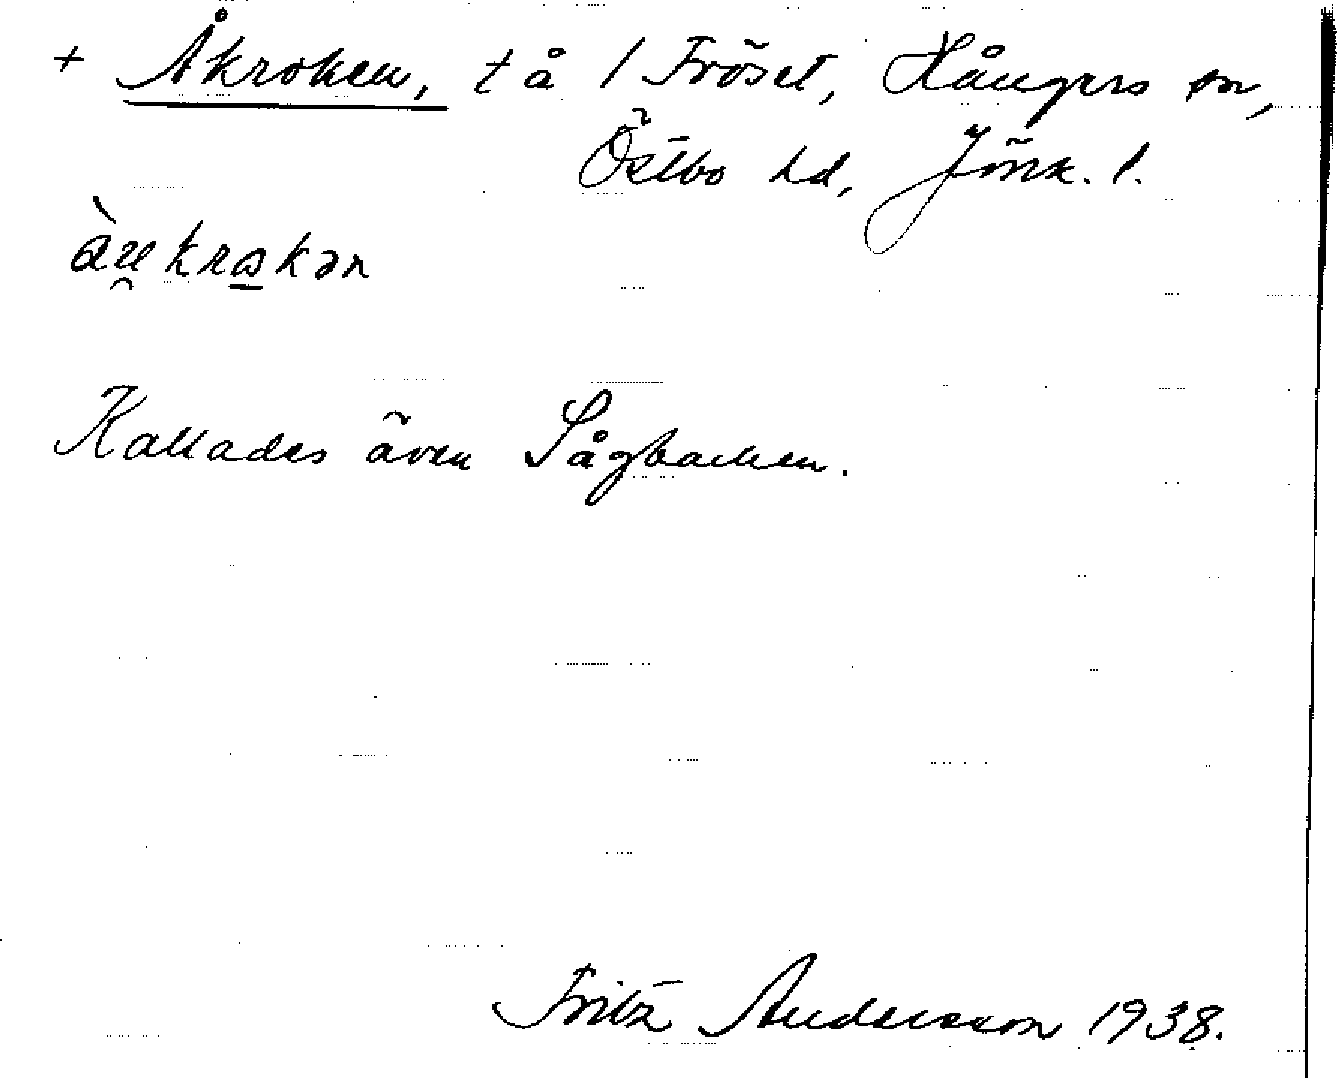 + Åkroken, t å / Fröset, Hångers sn,
Östbo hd, Jönk. l.
àu̯krɷkən
Kallades även Sågbacken.
Fritz Andersson 1938.